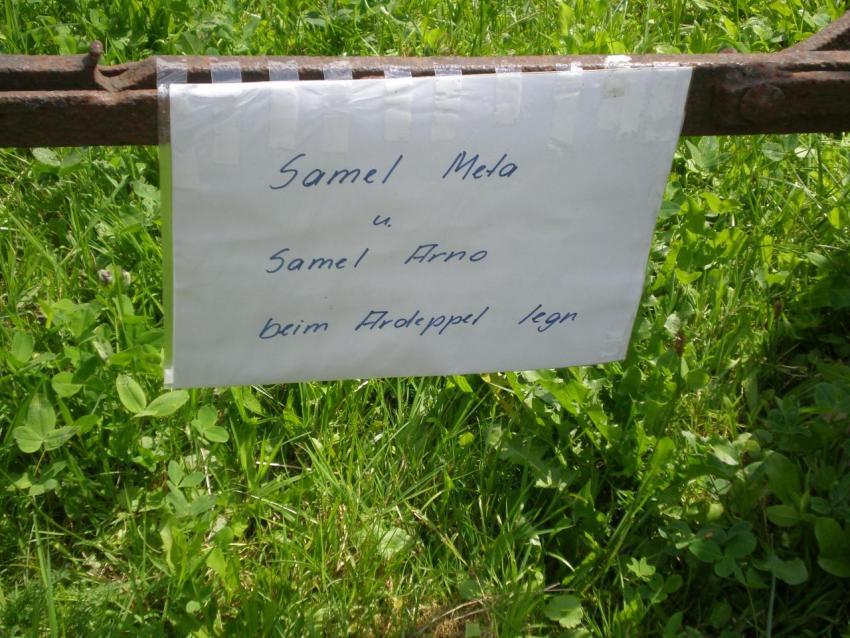 Samel Meta
u.
Samel Arno
beim Ardeppel legn